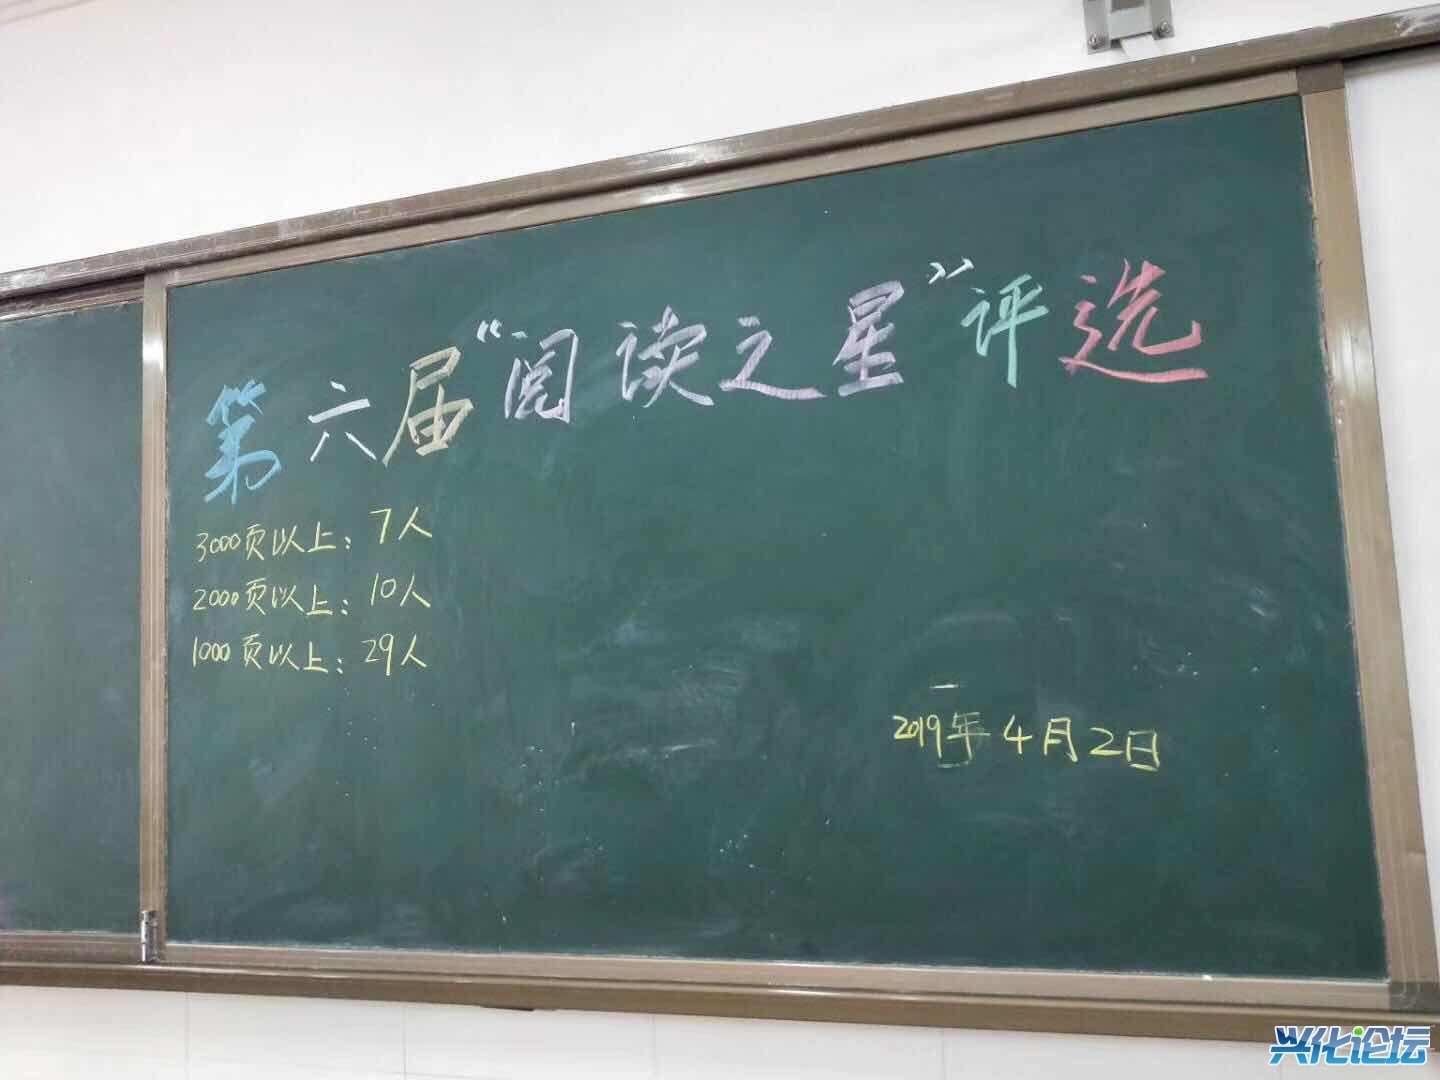 第六届“阅读之星”评选
3000页以上：7人
2000页以上：10人
1000页以上：29人
2019年4月2日
兴化论坛